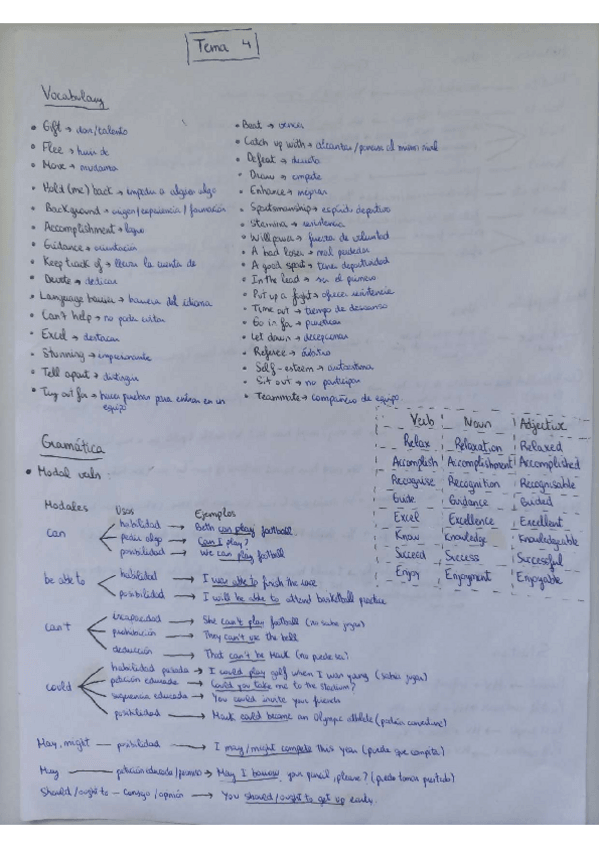 Tema 4
Vocabulary
• Gift → don/talento
• Flee → huir de
• Move → mudarse
• Hold (me) back → impedir a alguien algo
• Background → origen/experiencia/formación
• Accomplishment → logro
• Guidance → orientación
• Keep track of → llevar la cuenta de
• Devote → dedicar
• Language barrier → barrera del idioma
• Can't help → no poder evitar
• Excel → destacar
• Stunning → impresionante
• Tell apart → distinguir
• Try out for → hacer pruebas para entrar en un equipo
• Beat → vencer
• Catch up with → alcanzar/ponerse al mismo nivel
• Defeat → derrota
• Draw → empate
• Enhance → mejorar
• Sportsmanship → espíritu deportivo
• Stamina → resistencia
• Willpower → fuerza de voluntad
• A bad loser → mal perdedor
• A good sport → tener deportividad
• In the lead → ser el primero
• Put up a fight → ofrecer resistencia
• Time out → tiempo de descanso
• Go in for → practicar
• Let down → decepcionar
• Referee → árbitro
• Self-esteem → autoestima
• Sit out → no participar
• Teammate → compañero de equipo
Verb Noun Adjective
Relax Relaxation Relaxed
Accomplish Accomplishment Accomplished
Recognise Recognition Recognisable
Guide Guidance Guided
Excel Excellence Excellent
Know Knowledge Knowledgeable
Succeed Success Successful
Enjoy Enjoyment Enjoyable
Gramática
• Modal verbs:
Modales Usos Ejemplos
can
habilidad → Beth can play football.
pedir algo → Can I play?
posibilidad → We can play football
be able to
habilidad → I was able to finish the race
posibilidad → I will be able to attend basketball practice
can't
incapacidad → She can't play football (no sabe jugar)
prohibición → They can't use the ball
deducción → That can't be Mark (no puede ser)
could
habilidad pasada → I could play golf when I was young (sabía jugar)
petición educada → Could you take me to the stadium?
sugerencia educada → You could invite your friends
posibilidad → Mark could become an Olympic athlete (podría convertirse)
May, might — posibilidad → I may/might compete this year (puede que compita)
May → petición educada/permiso → May I borrow your pencil, please? (puedo tomar prestado)
Should/ought to — consejo/opinión → You should/ought to get up early.